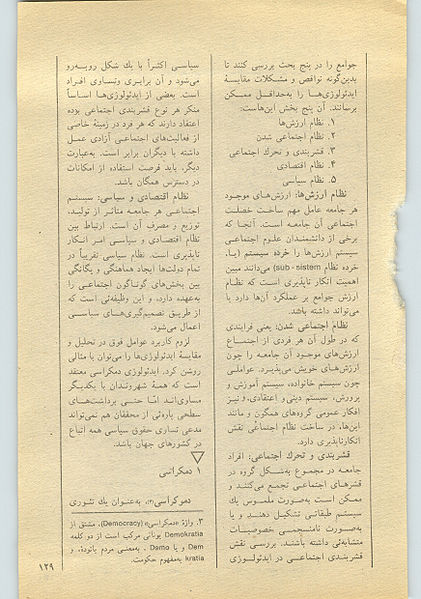 جوامع را در پنج بحث بررسی کنند تا
بدین‌گونه نواقص و مشکلات مقایسهٔ
ایدئولوژی‌ها را به‌حداقل ممکن
برسانند. آن پنج بخش این‌هاست:
۱. نظام ارزش‌ها
۲. نظام اجتماعی شدن
۳. قشربندی و تحرک اجتماعی
۴. نظام اقتصادی
۵. نظام سیاسی
نظام ارزش‌ها: ارزش‌های موجود
هر جامعه عامل مهم ساخت خصلت
اجتماعی آن جامعه است. آنجا که
برخی از دانشمندان علوم اجتماعی
سیستم ارزش‌ها را خرده سیستم (یا،
خرده نظام sub-sistem) می‌دانند مبین
اهمیت انکار ناپذیری است که نظام
ارزش جوامع بر عملکرد آن‌ها دارد یا
می‌تواند داشته باشد.
نظام اجتماعی شدن: یعنی فرایندی
که در طول آن هر فردی از اجتماع
ارزش‌های موجود آن جامعه را چون
ارزش‌های خویش می‌پذیرد. عواملی
چون سیستم خانواده، سیستم آموزش و
پرورش، سیستم دینی و اعتقادی، و نیز
افکار عمومی گروه‌های همگون و مانند
این‌ها، در ساخت نظام اجتماعی نقش
انکارناپذیری دارد.
قشربندی و تحرک اجتماعی: افراد
جامعه در مجموع به‌شکل گروه در
قشرهای اجتماعی تجمع می‌کنند و
ممکن است به‌صورت ملموس یک
سیستم طبقاتی تشکیل دهند و یا
به‌صورت نامنسجمی خصوصیات
متشابه‌ئی داشته باشند. بررسی نقش
قشربندی اجتماعی در ایدئولوژی
سیاسی اکثراً با یک شکل روبه‌رو
می‌شود و آن برابری وتساوی افراد
است. بعضی از ایدئولوژی‌ها اساساً
منکر هر نوع قشربندی اجتماعی بوده
اعتقاد دارند که هر فرد در زمینهٔ خاصی
از فعالیت‌های اجتماعی آزادی عمل
داشته با دیگران برابر است. به‌عبارت
دیگر، باید فرصت استفاده از امکانات
در دسترس همگان باشد.
نظام اقتصادی و سیاسی: سیستم
اجتماعی هر جامعه متأثر از تولید،
توزیع و مصرف آن است. ارتباط بین
نظام اقتصادی و سیاسی امر انکار
ناپذیری است. نظام سیاسی تقریباً در
تمام دولت‌ها ایجاد هماهنگی و یگانگی
بین بخش‌های گوناگون اجتماعی را
به‌عهده دارد، و این وظیفه‌ئی است که
از طریق تصمیم‌گیری‌های سیاسی
اعمال می‌شود.
لزوم کاربرد عوامل فوق در تحلیل و
مقایسهٔ ایدئولوژی‌ها را می‌توان با مثالی
روشن کرد. ایدئولوژی دمکراسی معتقد
است که همهٔ شهروندان با یکدیگر
مساوی‌اند امّا حتی برداشت‌های
سطحی پاره‌ئی از محققان هم نمی‌تواند
مدعی تساوی حقوق سیاسی همه اتباع
در کشورهای جهان باشد.
۱ دمکراسی
دموکراسی(۳)، به‌عنوان یک تئوری
۳. واژهٔ «دمکراسی» (Democracy)، مشتق از
Demokratia یونانی مرکب است از دو کلمه
Dem و یا Demo ، به‌معنی مردم یاتوده، و
kratia به‌مفهوم حکومت.
۱۲۹